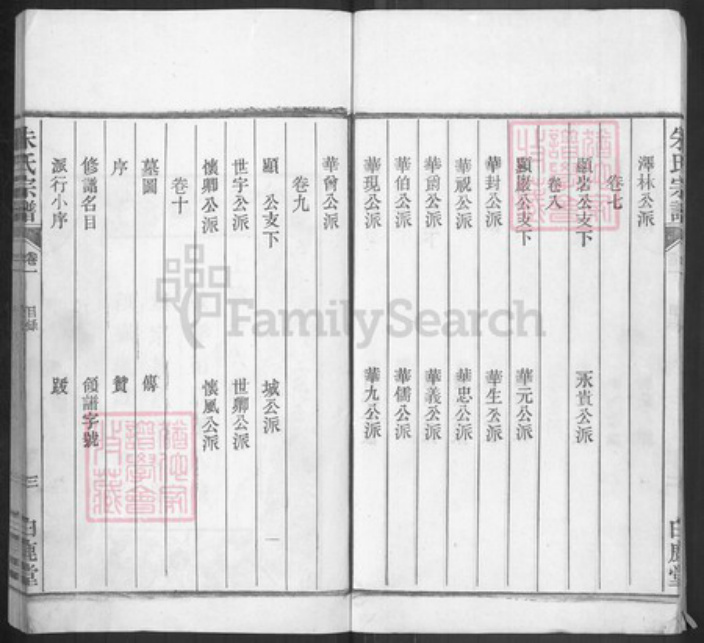 澤林公派
卷七
顯岩公支下 永貴公派
卷八
顯嚴公支下 華元公派
華封公派 華生公派
華祝公派 華忠公派
華爵公派 華義公派
華伯公派 華儒公派
華現公派 華九公派
華會公派
卷九
顯 公支下 城公派
世宇公派 世卿公派
懷卿公派 懷風公派
卷十
墓圖 傳
序 贊
修譜名目 領譜字號
派行小序 跋
朱氏宗譜 卷一 目錄 三 白鹿堂
朱氏宗譜
白鹿堂
猶他家譜學會收藏
猶他家譜學會收藏
FamilySearch